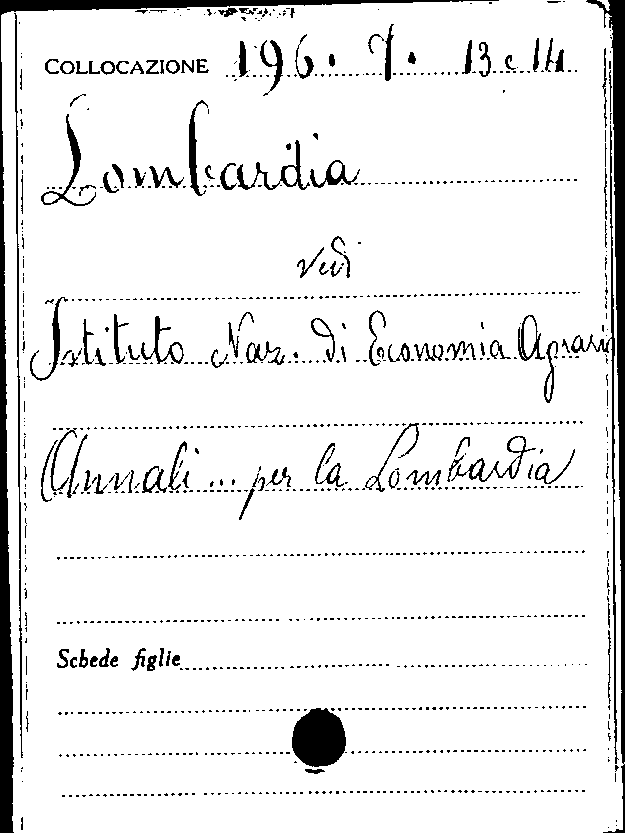 COLLOCAZIONE 196. 7. 13 e 14
Lombardia
vedi
Istituto Naz. di Economia Agraria
Annali ... per la Lombardia
Schede figlie